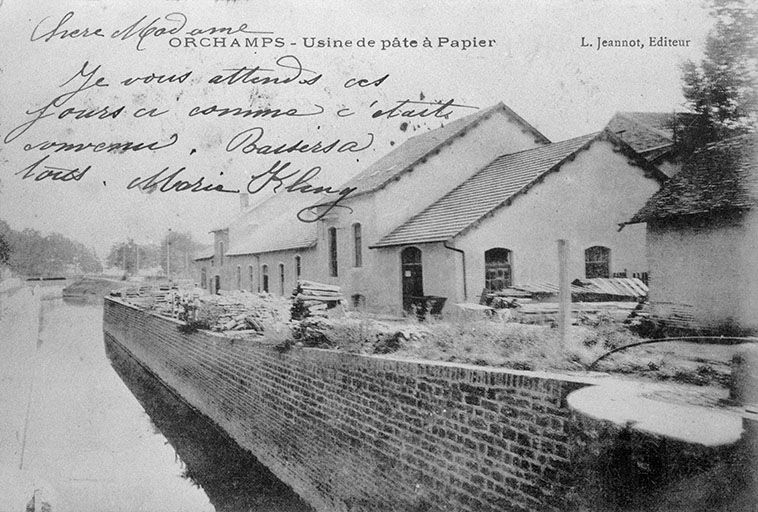 Chere Madame
ORCHAMPS - Usine de pâte à Papier
L. Jeannot, Editeur
Je vous attends ces
jours ci comme c'etait
convenu. Baisers a
tous. Marie Kling